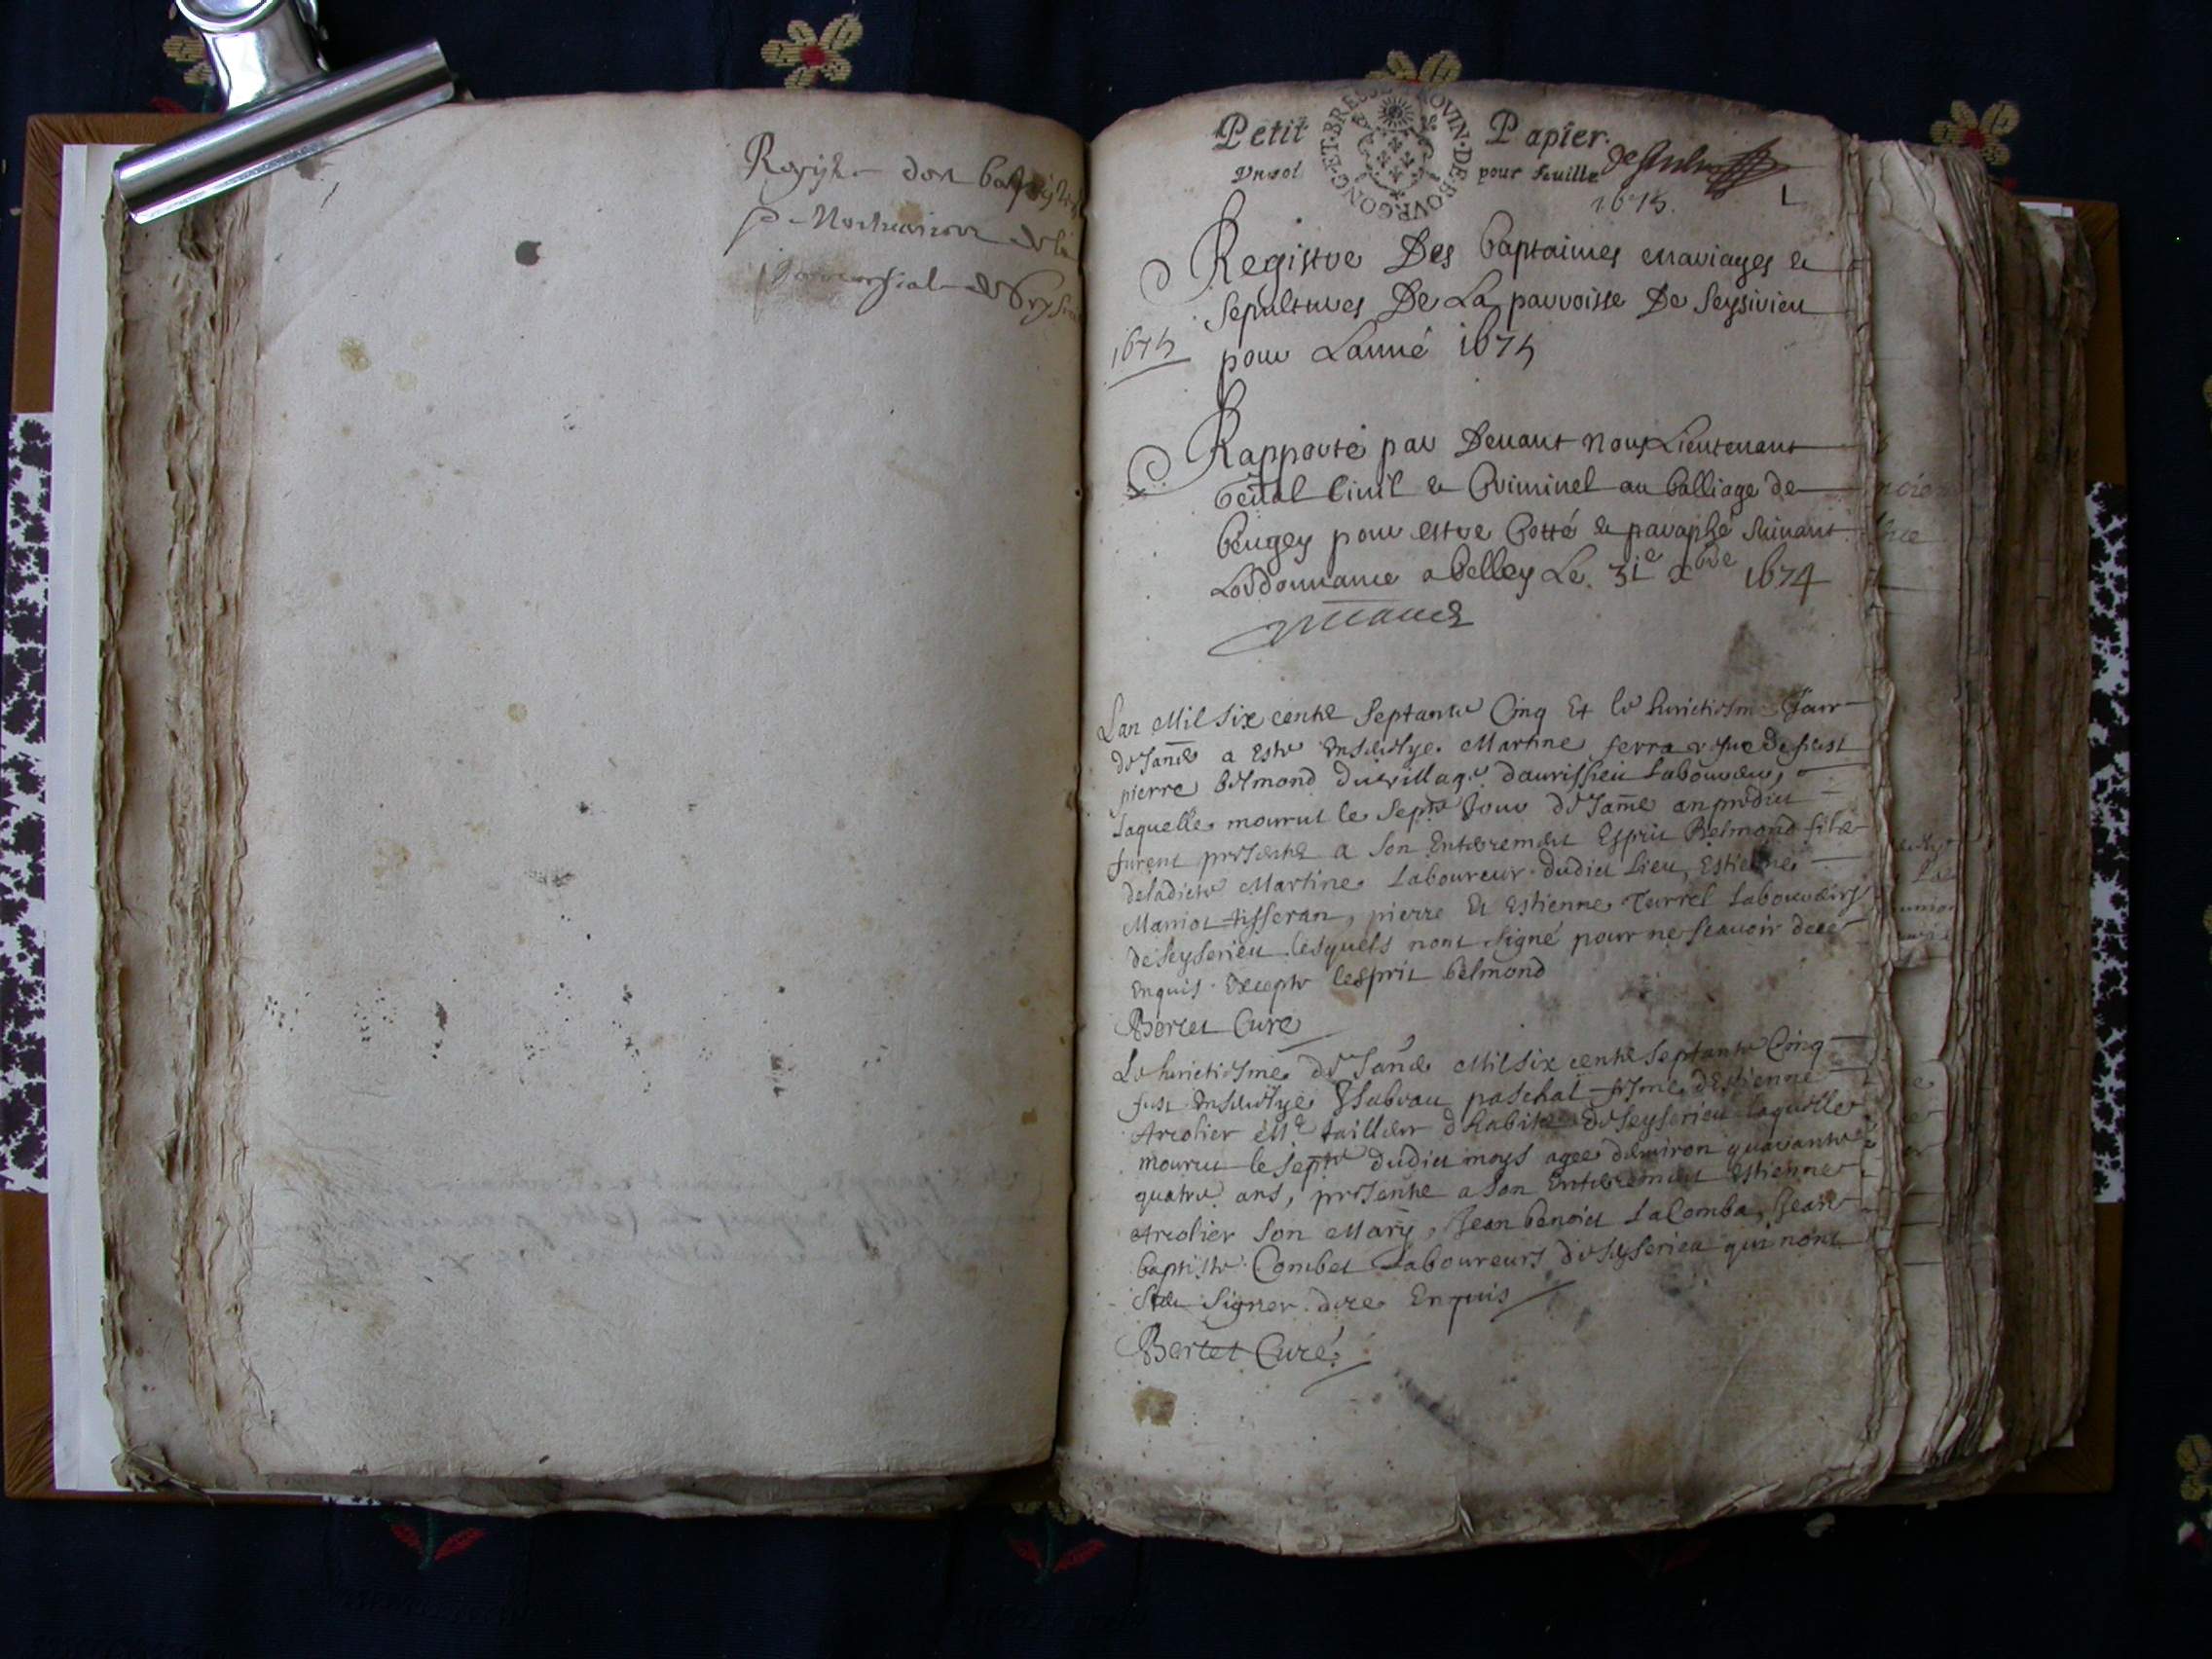 Registre des
Petit Papier.
Vn sol pour feuille
GONG·ET·BRESS OVIN·DE·BOVR
1675.
1
Registre Des baptaimes mariages &
sepultures De La parroisse De Seysirieu
1675
pour Lanné 1675
Rapporté par Deuant nous Lieutenant
gēnal Ciuil & Criminel au balliage de
beugey pour estre Cotté & paraphé suiuant
Lordonnance a belley Le 31e xbre 1674
Lan Mil six cents septante Cinq Et le huictiesme Jour
de Janer a este enseuelye Martine ferra
pierre belmond du village daurissieu laboureur,
laquelle mourut le septe Jour de Janer an predict
furent presents a son enterrement Esprit Belmond fils
deladicte Martine laboureur dudict lieu, Estienne
Marriot tisseran, pierre et Estienne Turrel laboureurs
de seyserieu lesquels nont signé pour ne scauoir de ce
enquis excepte lesprit belmond
Bertet Curé
Le huictiesme de Janer Mil six cents septante Cinq
fust enseuelye ysabeau paschal feme dEstienne
Arcolier Me tailleur dhabits de seyserieu laquelle
mourut le septe dudict moys agee denuiron quarante
quatre ans, presents a son enterrement Estienne
Arcolier son Mary, Jean benoict laComba, Jean
baptiste Combet laboureurs de seyserieu qui nont
sceu signer de ce Enquis
Bertet Curé